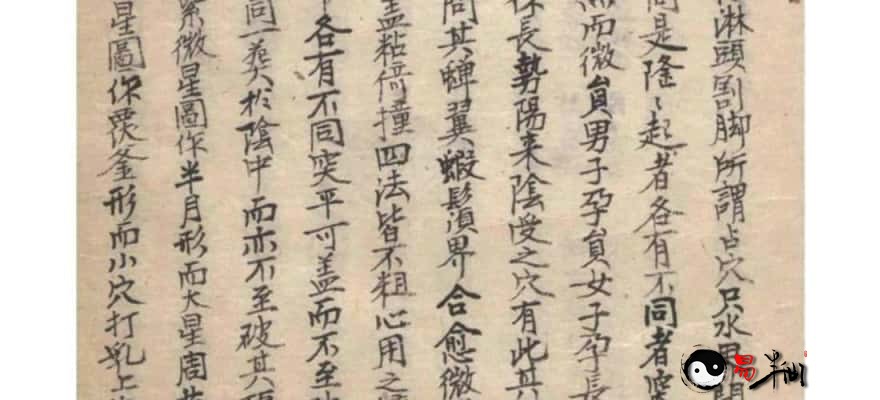 淋頭割脚所謂占穴只水界
是隆〻起者各有不同者突
而微員男子孕員女子孕長
長勢陽来陰受之穴有此其
其蟬翼蝦鬚湏界合愈微
盖粘倚撞四法皆不粗心用之
各有不同突平可盖而不至
同一葬於陰中而亦不至破其
紫微星圖作半月形而大星周
星圖你覆釜形而小穴打乳上
易半仙